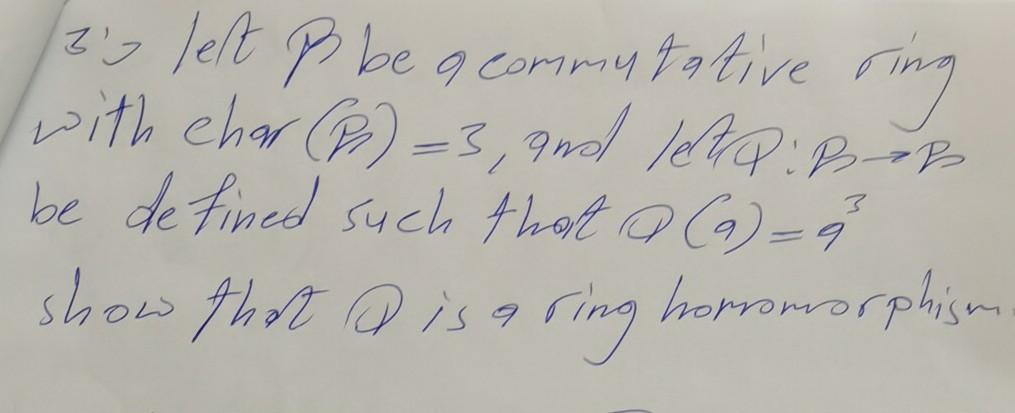 3's left R be a commutative ring
with char (R) = 3, and let φ: R → R
be defined such that φ(a) = a³
show that φ is a ring homomorphism.